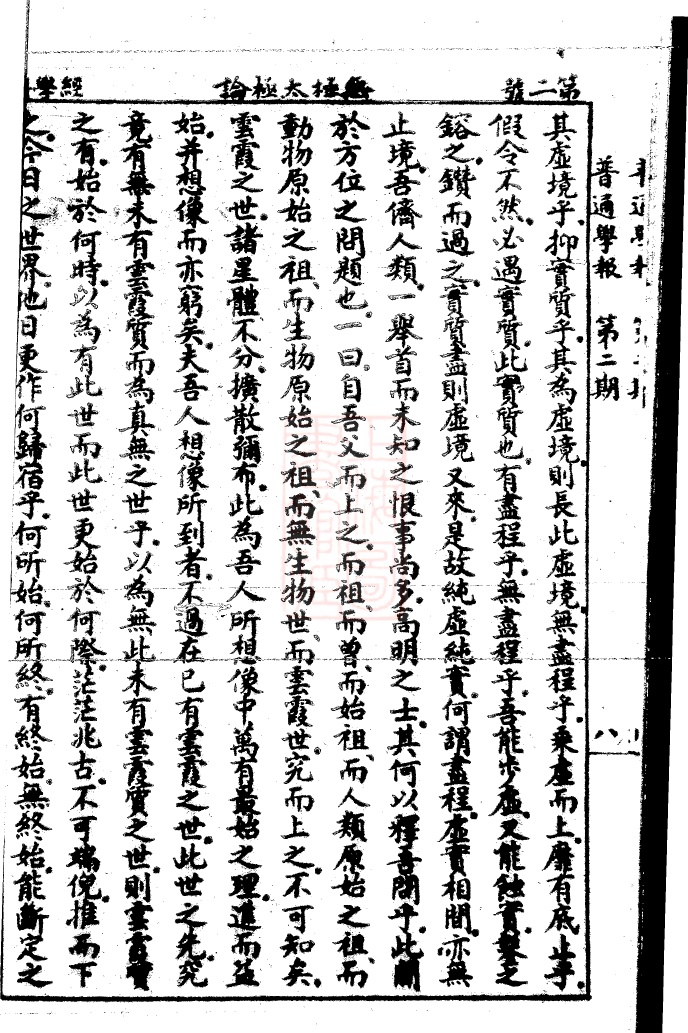 第二號
無極太極論
經學
普通學報　第二期
八
其虛境乎抑實質乎其為虛境則長此虛境無盡程乎乘虛而上靡有底止乎
假令不然必遇實質此實質也有盡程乎無盡程乎吾能步虛又能蝕實鑿之
鎔之鑽而過之實質盡則虛境又來是故純虛純實何謂盡程虛實相間亦無
止境吾儕人類一舉首而未知之恨事尚多高明之士其何以釋吾問乎此關
於方位之問題也一曰自吾父而上之而祖而曾而始祖而人類原始之祖而
動物原始之祖而生物原始之祖而無生物世而雲霞世究而上之不可知矣
雲霞之世諸星體不分擴散彌布此為吾人所想像中萬有最始之理進而益
始并想像而亦窮矣夫吾人想像所到者不過在已有雲霞之世此世之先究
竟有無未有雲霞質而為真無之世乎以為無此未有雲霞質之世則雲霞質
之有始於何時以為有此世而此世更始於何際茫茫兆古不可端倪推而下
之今日之世界他日更作何歸宿乎何所始何所終有終始無終始能斷定之